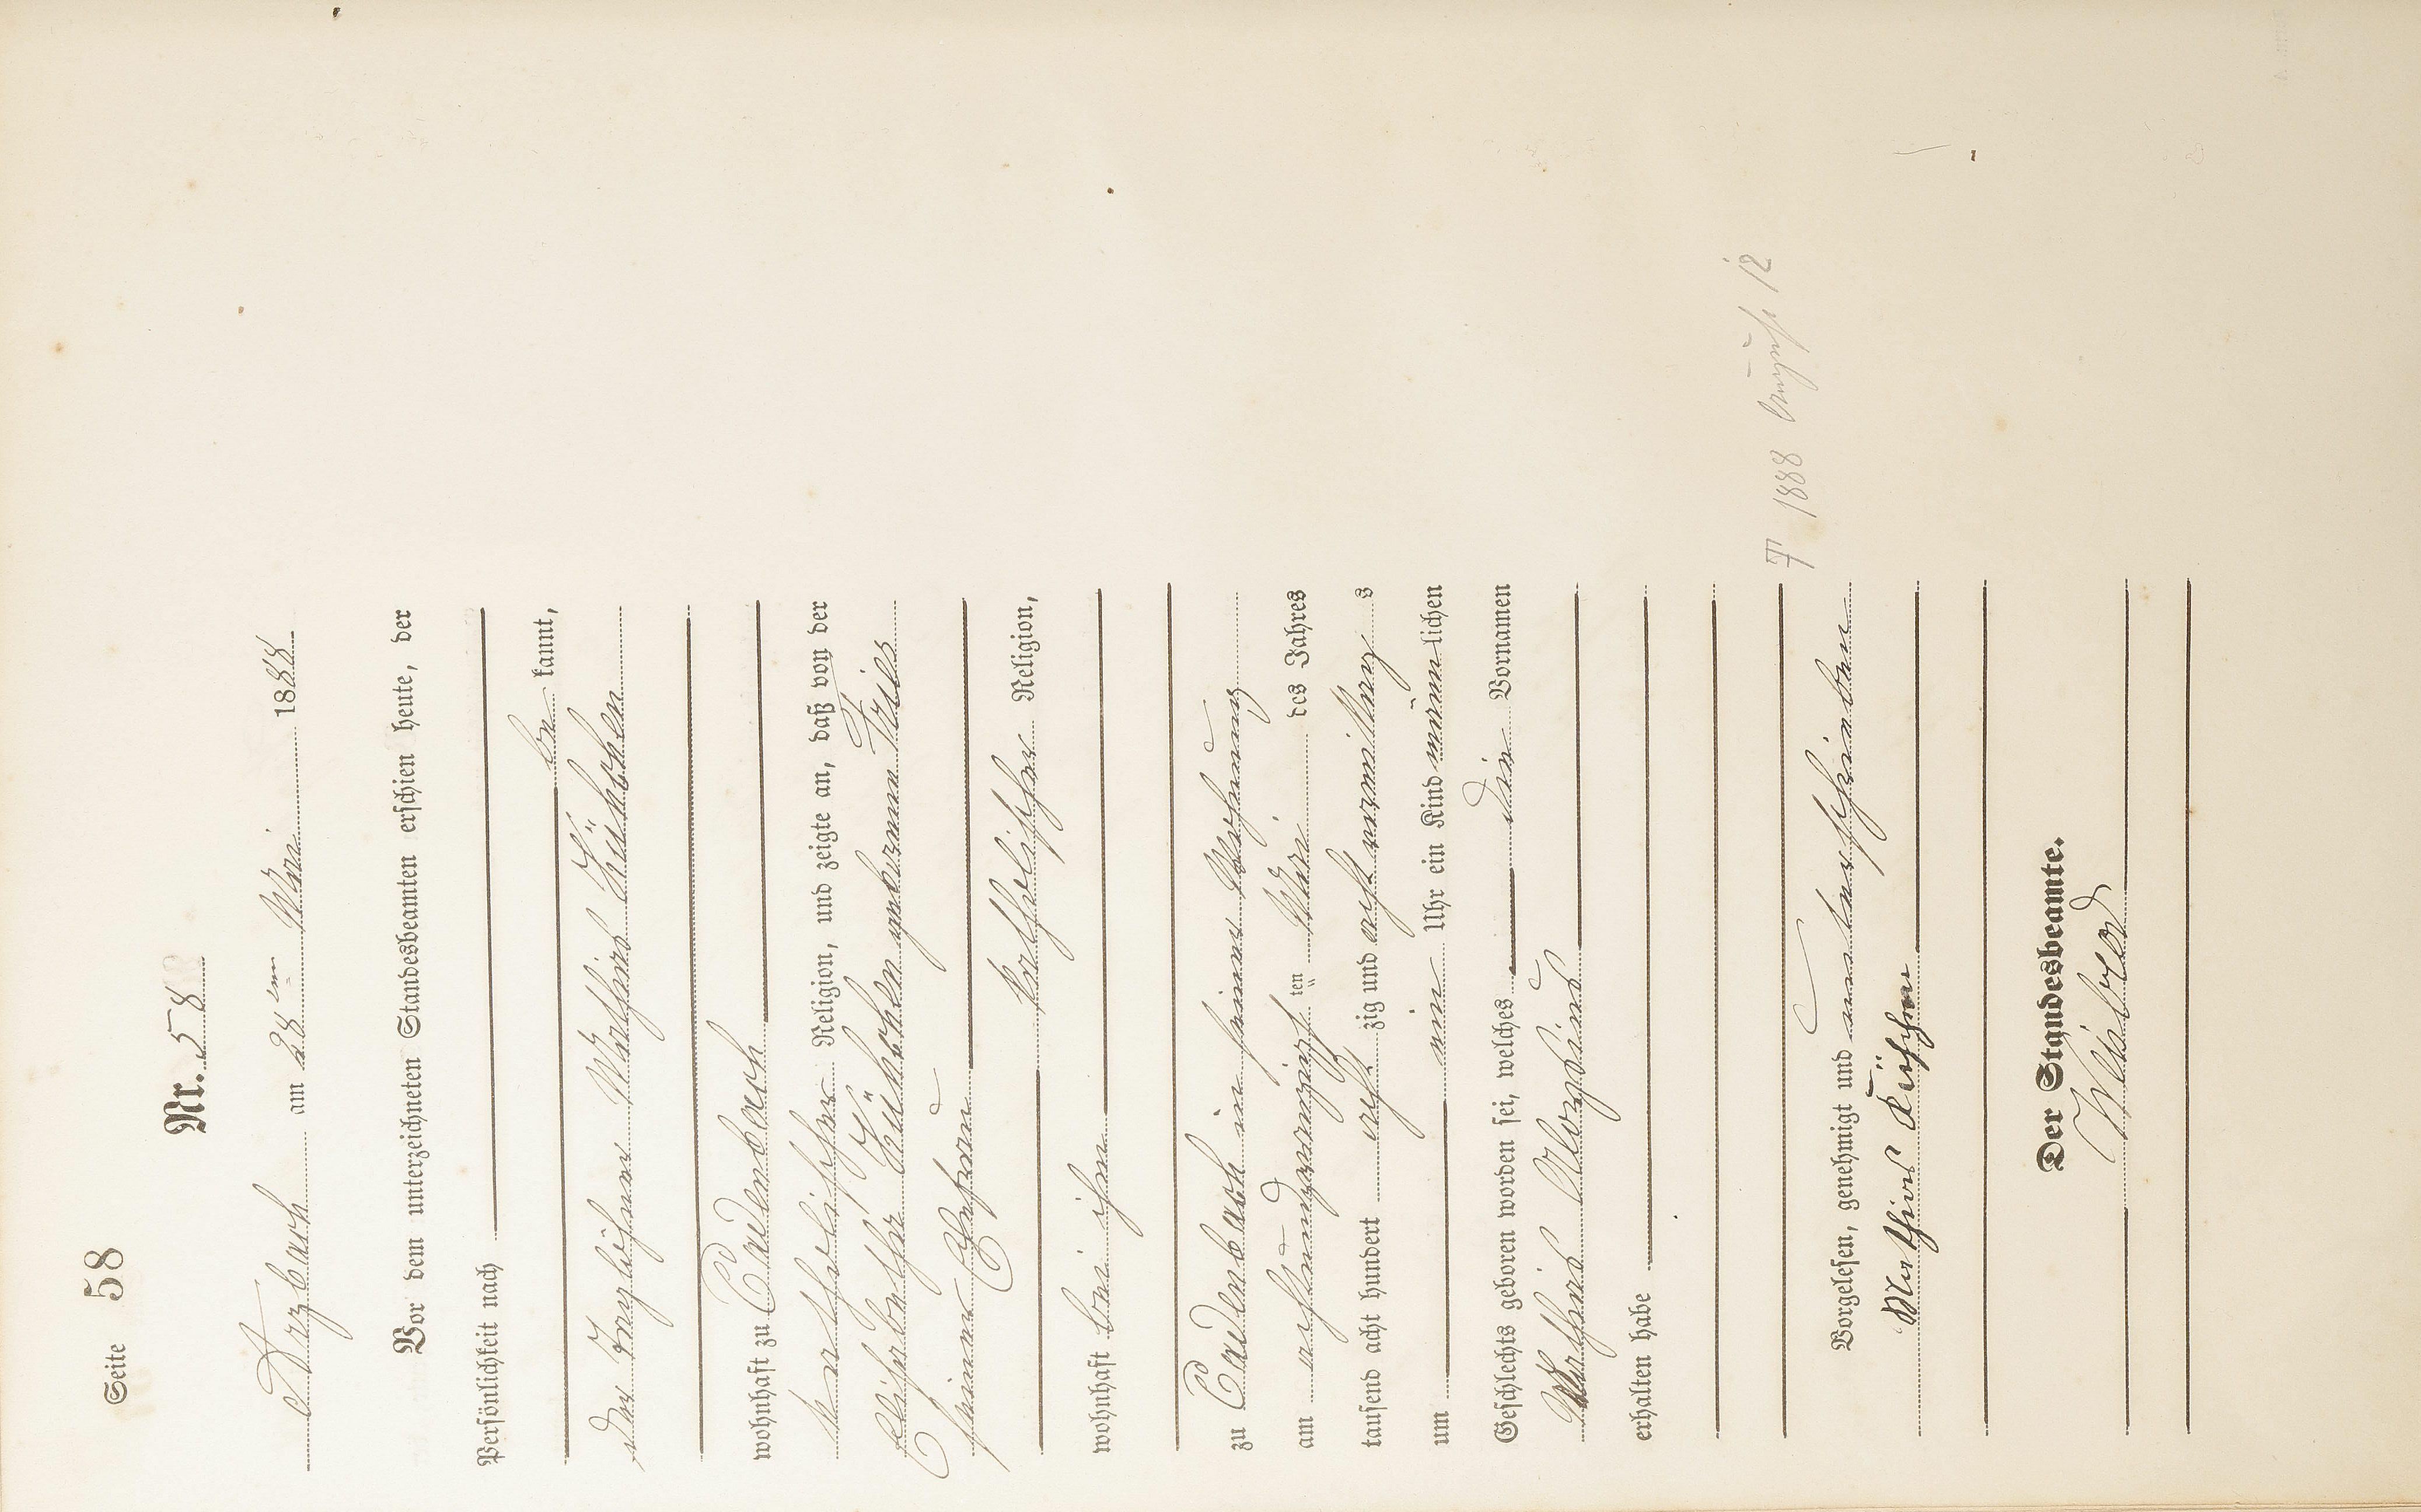 Seite 58
Nr. 58
Arzbach am 28ten Mai 1888
Vor dem unterzeichneten Standesbeamten erschien heute, der
Persönlichkeit nach
be kannt,
der Taglöhner Mathias
wohnhaft zu Cadenbach
katholischer Religion, und zeigte an, daß von der
Elisabetha geborene Fries
seiner Ehefrau
katholischer Religion,
wohnhaft bei ihm
zu Cadenbach in seiner Wohnung
am achtundzwanzigsten Mai des Jahres
tausend acht hundert acht zig und acht vormittags
um ein Uhr ein Kind männlichen
Geschlechts geboren worden sei, welches die Vornamen
Mathias
erhalten habe
† 1888 August 12
Vorgelesen, genehmigt und unterschrieben
Mathias
Der Standesbeamte.